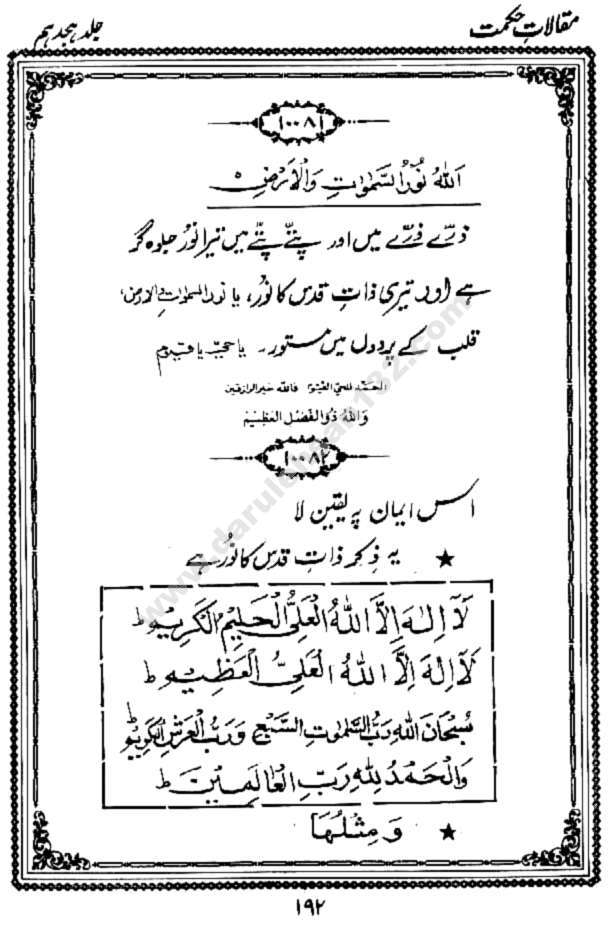 مقالاتِ حکمت
جلد ہیجدہم
۱۰۰۸۱
اَللهُ نُوْرُ السَّمٰوٰتِ وَالْاَرْضِ ہ
ذرّے ذرّے میں اور پتّے پتّے میں تیرا نُور جلوہ گر
ہے اور تیری ذاتِ قدس کا نُور، یا نور السمٰوات والارض،
قلب کے پردوں میں مستور۔ یا حیّ یا قیّوم
الحمد للحیّ القیّوم فاللہ خیر الرازقین
وَاللهُ ذُو الْفَضْلِ الْعَظِیْمِ
۱۰۰۸۲
اس ایمان پہ یقین لا
★ یہ ذِکر ذاتِ قدس کا نُور ہے
لَآ اِلٰهَ اِلَّا اللهُ الْعَلِیُّ الْحَلِیْمُ الْکَرِیْمُ ط
لَآ اِلٰهَ اِلَّا اللهُ الْعَلِیُّ الْعَظِیْمُ ط
سُبْحَانَ اللهِ رَبُّ السَّمٰوٰتِ السَّبْعِ وَرَبُّ الْعَرْشِ الْکَرِیْمِ ط
وَالْحَمْدُ لِلّٰهِ رَبِّ الْعَالَمِیْنَ ط
★ وَمِثْلُهَا
۱۹۲